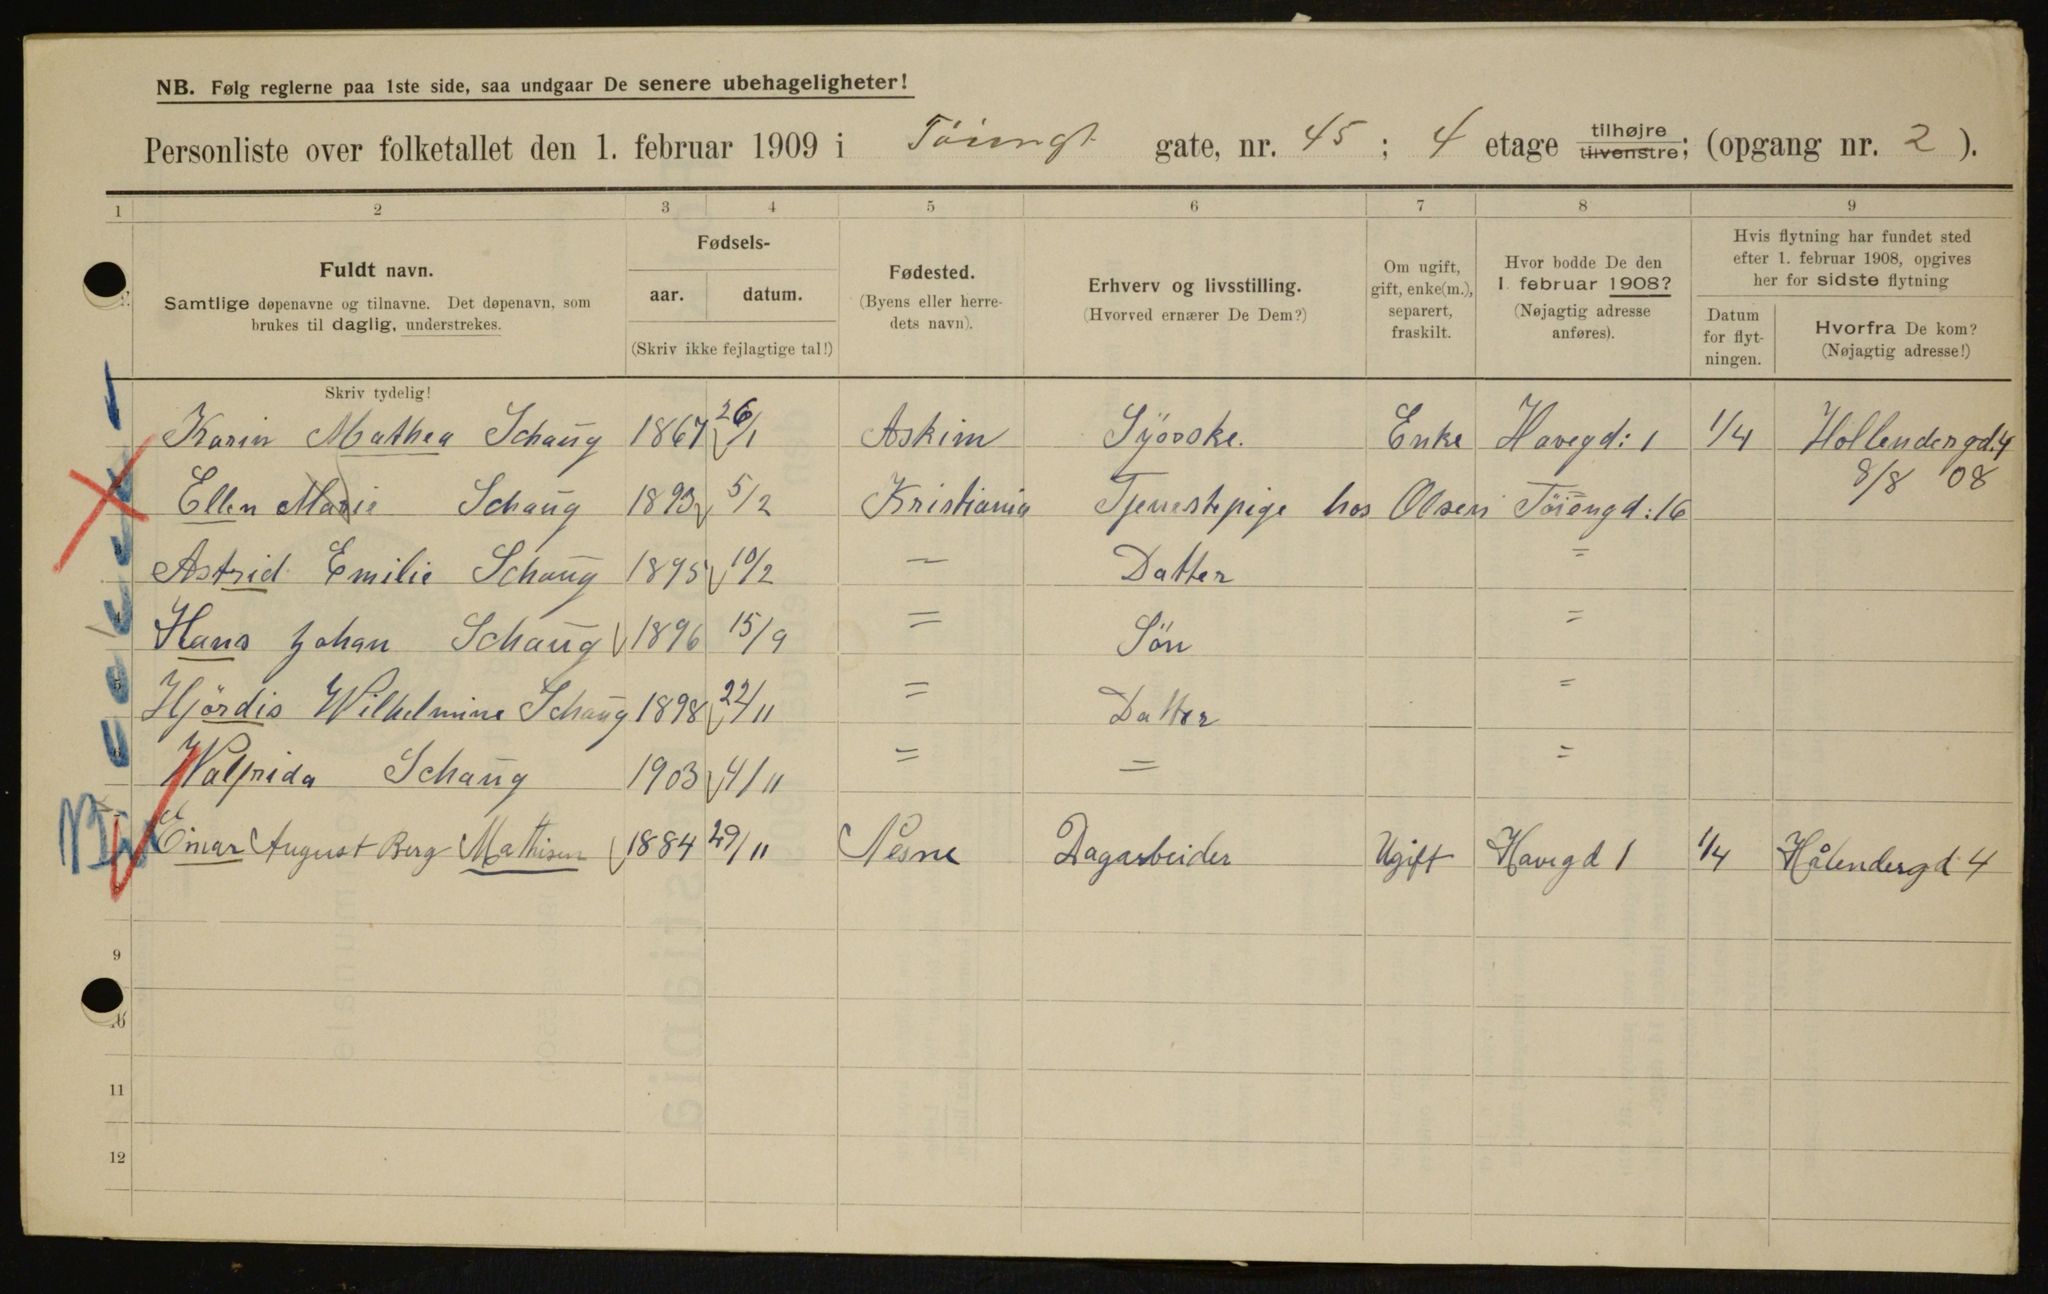 NB. Følg reglerne paa 1ste side, saa undgaar De senere ubehageligheter!
Personliste over folketallet den 1. februar 1909 i Töiengt gate, nr. 45 ; 4 etage tilhøjre tilvenstre; (opgang nr. 2 ).
1 2 3 4 5 6 7 8 9
Fuldt navn.
Samtlige døpenavne og tilnavne. Det døpenavn, som
brukes til daglig, understrekes.
Fødsels-
aar. datum.
(Skriv ikke fejlagtige tal!)
Fødested.
(Byens eller herre-
dets navn).
Erhverv og livsstilling.
(Hvorved ernærer De Dem?)
Om ugift,
gift, enke(m.),
separert,
fraskilt.
Hvor bodde De den
1. februar 1908?
(Nøjagtig adresse
anføres).
Hvis flytning har fundet sted
efter 1. februar 1908, opgives
her for sidste flytning
Datum
for flyt-
ningen.
Hvorfra De kom?
(Nøjagtig adresse!)
Skriv tydelig!
Karin Mathea Schaug 1867 26/1 Askim Syörske. Enke Havegd: 1 1/4 Hollendergd. 4
8/8 08
Ellen Marie Schaug 1893 5/2 Kristiania Tjenestepige hos Olsen Töiengd: 16
Astrid Emilie Schaug 1895 10/2 — Datter =
Hans Johan Schaug 1896 15/9 = Sön =
Hjördis Wilhelmine Schaug 1898 22/11 = Datter =
Walfrida Schaug 1903 4/11 = = =
Einar August Berg Mathisen 1884 29/11 Nesne Dagarbeider Ugift Havegd 1 1/4 Hålendergd 4
9
10
11
12